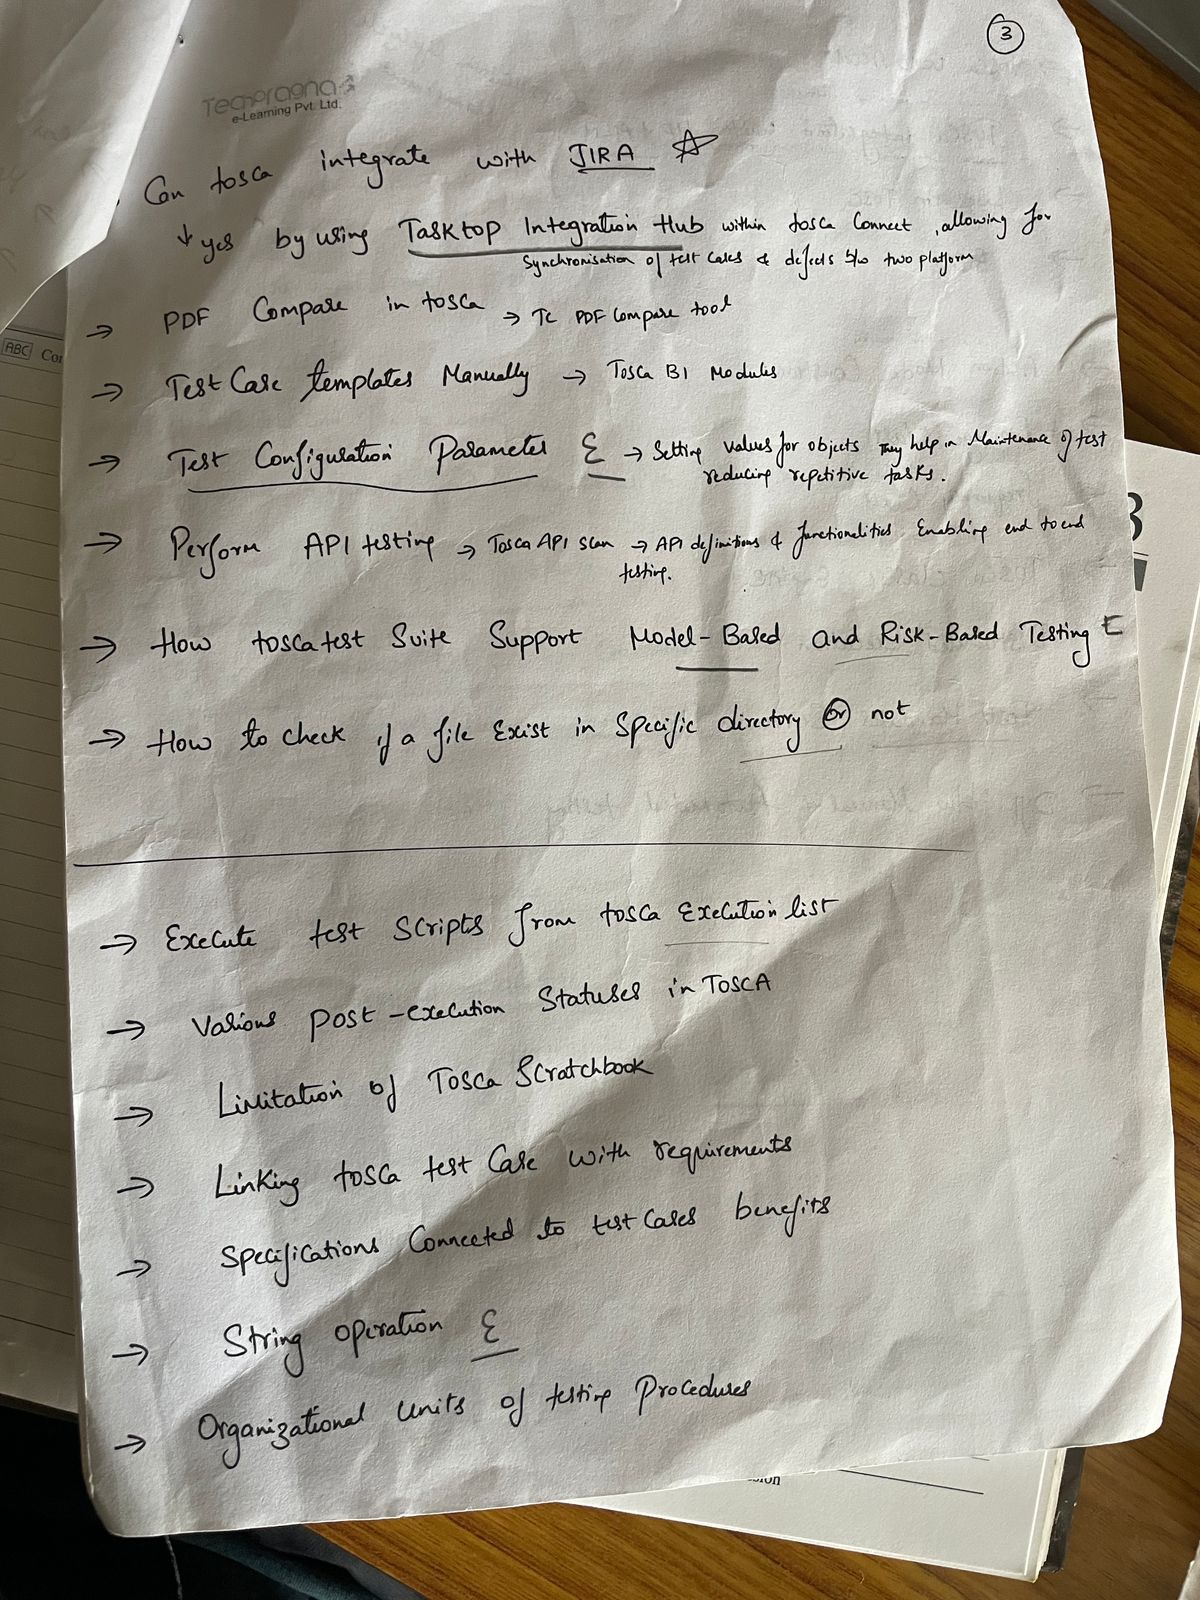 3
Techpragna
e-Learning Pvt. Ltd.
Can tosca integrate with JIRA
↓ yes by using Tasktop Integration Hub within tosca Connect, allowing for
Synchronisation of test cases & defects b/w two platform
→ PDF Compare in tosca → TC PDF Compare tool
→ Test Case templates Manually → Tosca BI Modules
→ Test Configuration Parameter E → Setting values for objects They help in Maintenance of test
reducing repetitive tasks.
→ Perform API testing → Tosca API scan → API definitions & functionalities Enabling end to end
testing.
→ How tosca test Suite Support Model-Based and Risk-Based Testing E
→ How to check if a file Exist in Specific directory or not
→ Execute test scripts from tosca Execution list
→ Various post-execution Statuses in TOSCA
→ Limitation of Tosca Scratchbook
→ Linking tosca test Case with requirements
→ Specifications Connected to test Cases benefits
→ String operation E
→ Organizational units of testing Procedures
ABC